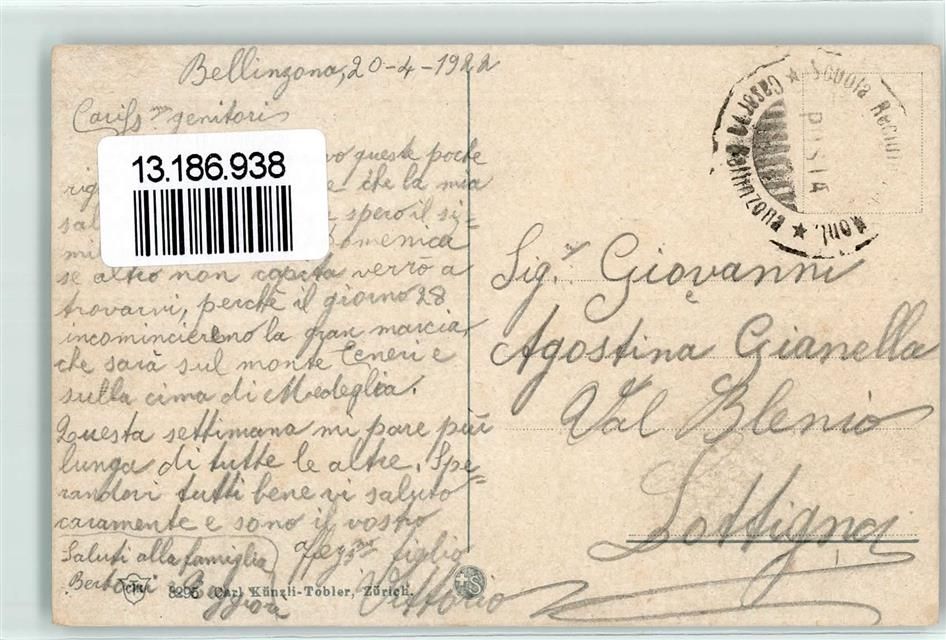 Bellinzona, 20-4-1922
Cariss mi genitori
13.186.938
queste poche
che la mia
spero il si-
Domenica
se altro non capita verrò a
trovarvi, perchè il giorno 28
incomincieremo la gran marcia,
che sarà sul monte Ceneri e
sulla cima di Medeglia.
Questa settimana mi pare più
lunga di tutte le altre. Spe-
randovi tutti bene vi saluto
caramente e sono il vostro
figlio
Vittorio
Saluti alla famiglia
8295 Carl Künzli-Tobler, Zürich.
Scuola
Caserma Bellinzona
Sig.r Giovanni
e
Agostina Gianella
Val Blenio
Lottigna